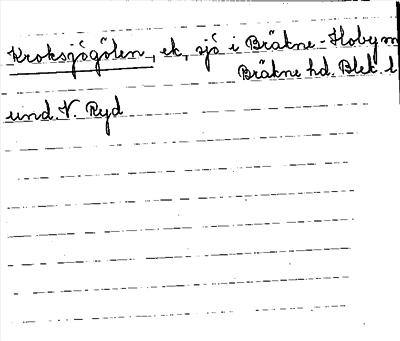 Kroksjögölen, ek, sjö i Bräkne-Hoby
Bräkne hd. Blek. l
und. V. Ryd